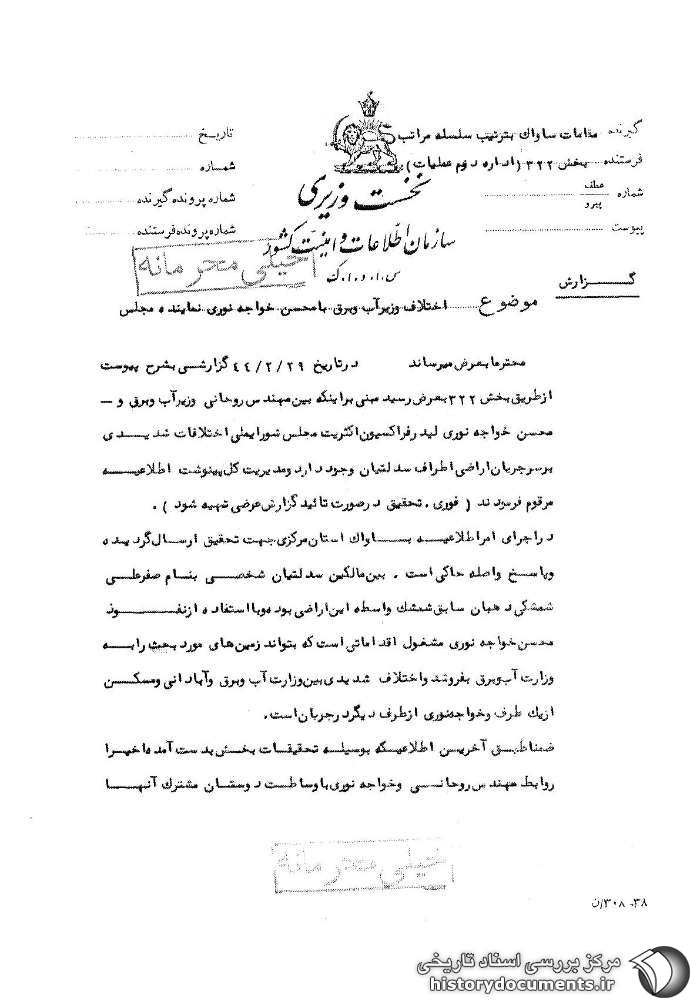 گیرنده مقامات ساواک بترتیب سلسله مراتب
تاریخ
فرستنده بخش ۳۲۲ (اداره دوم عملیات)
شماره
شماره عطف
پیرو
شماره پرونده گیرنده
پیوست
شماره پرونده فرستنده
نخست وزیری
سازمان اطلاعات و امنیت کشور
س.ا.و.ا.ک
خیلی محرمانه
گزارش
موضوع اختلاف وزیر آب وبرق با محسن خواجه نوری نماینده مجلس
محترما بعرض میرساند در تاریخ ۴۴/۲/۲۹ گزارشی بشرح پیوست
از طریق بخش ۳۲۲ بعرض رسید مبنی براینکه بین مهندس روحانی وزیر آب وبرق و –
محسن خواجه نوری لیدر فراکسیون اکثریت مجلس شورایملی اختلافات شدیدی
بر سر جریان اراضی اطراف سد لتیان وجود دارد ومدیریت کل پینوشت اطلاعیه
مرقوم فرمودند ( فوری . تحقیق در صورت تائید گزارش عرضی تهیه شود ) .
در اجرای امر اطلاعیه بساواک استان مرکزی جهت تحقیق ارسال گردیده
وپاسخ واصله حاکی است . بین مالکین سد لتیان شخصی بنام صفرعلی
شمشکی دهبان سابق شمشک واسطه این اراضی بوده وبا استفاده از نفوذ
محسن خواجه نوری مشغول اقداماتی است که بتواند زمین های مورد بحث را به
وزارت آب وبرق بفروشد واختلاف شدیدی بین وزارت آب وبرق وآبادانی ومسکن
از یک طرف وخواجه نوری از طرف دیگر در جریان است .
ضمنا طبق آخرین اطلاعیکه بوسیله تحقیقات بخش بدست آمده اخیرا
روابط مهندس روحانی وخواجه نوری با وساطت دوستان مشترک آنها
خیلی محرمانه
۳۸ـ ۳۰۸/ن
مرکز بررسی اسناد تاریخی
historydocuments.ir